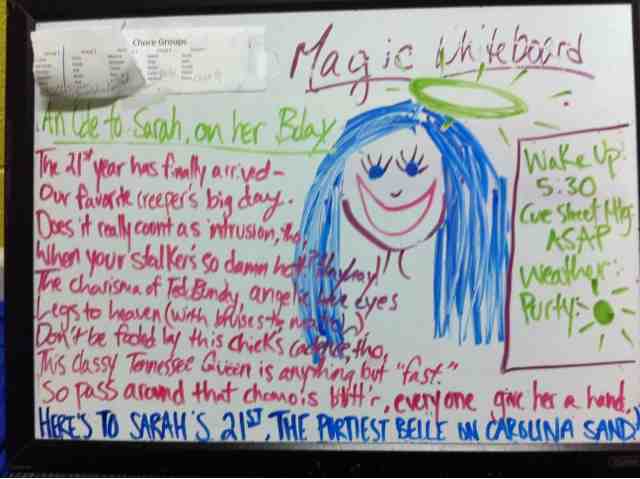 Chore Groups
Magic Whiteboard
An Ode to Sarah, on her Bday
The 21st year has finally arrived-
Our favorite creeper's big day.
Does it really count as intrusion, tho,
When your stalker's so damn hott? Hayhay!
The charisma of Ted Bundy, angelic blue eyes
Legs to heaven (with bruises to match)
Don't be fooled by this chick's cadence, tho,
This classy Tennessee Queen is anything but "fast."
So pass around that chamois butt'r, everyone give her a hand,
HERE'S TO SARAH'S 21ST, THE PURTIEST BELLE ON CAROLINA SAND!
Wake Up:
5:30
Cue Street Mtg
ASAP
Weather:
Purty: